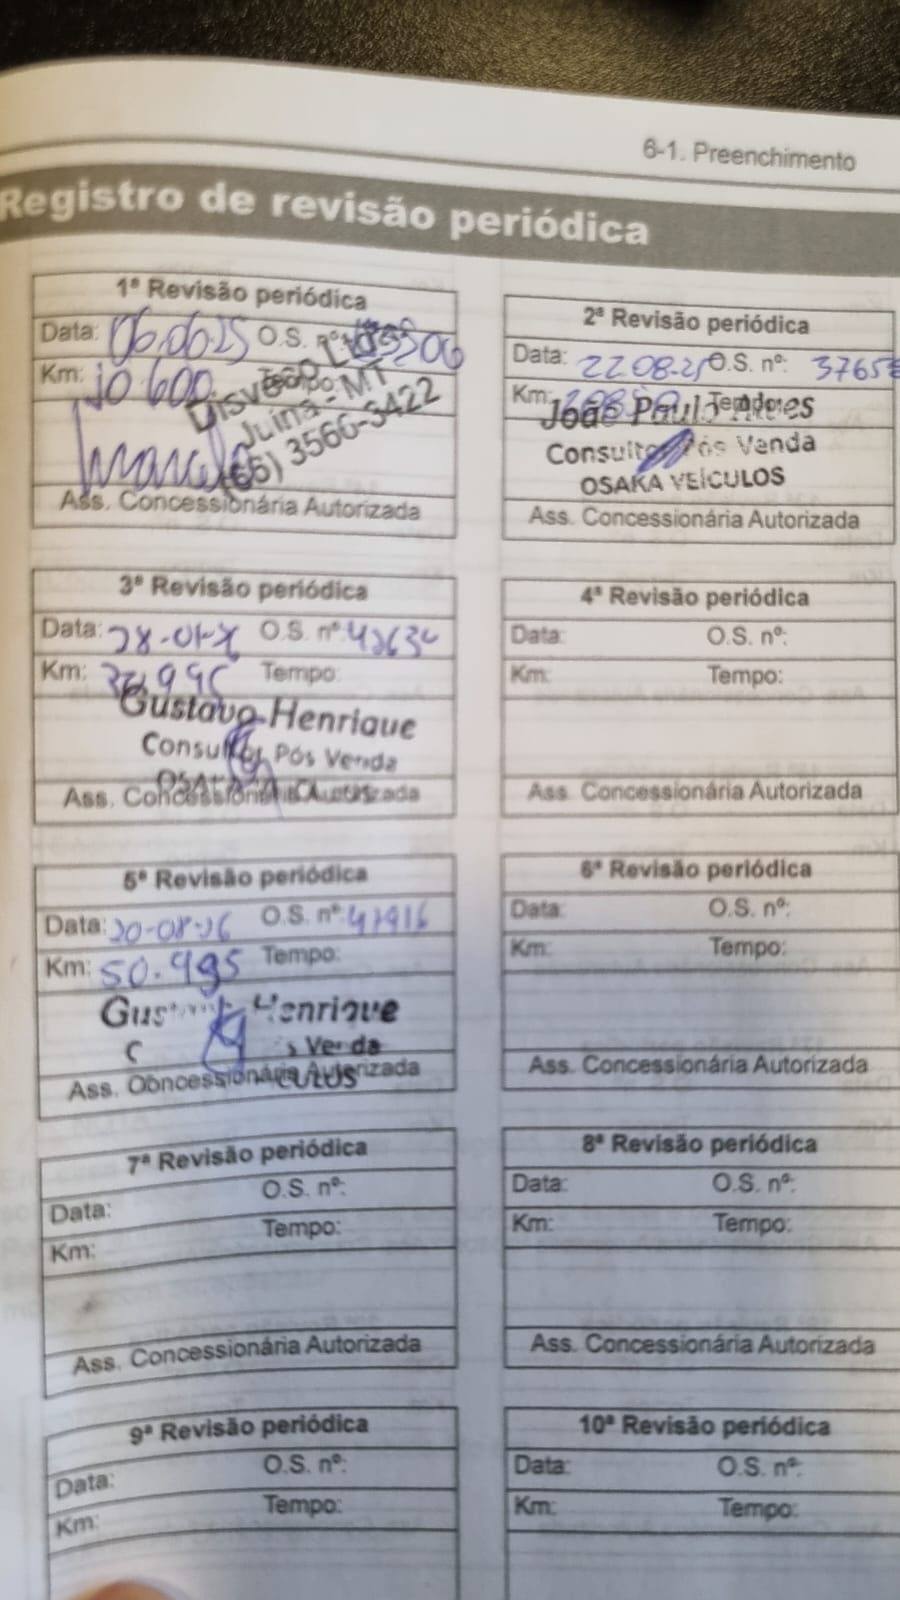 6-1. Preenchimento
Registro de revisão periódica
1ª Revisão periódica
Data: 06.06.25 O.S. nº:
Km: 10.600
Disveco Ltda
Juína - MT
(66) 3566-3422
Ass. Concessionária Autorizada
2ª Revisão periódica
Data: 22.08.25 O.S. nº: 37658
Km: Tempo:
João Paulo Alves
Consultor Pós Venda
OSAKA VEÍCULOS
Ass. Concessionária Autorizada
3ª Revisão periódica
Data: 28-01-26 O.S. nº:
Km: Tempo:
Gustavo Henrique
Consultor Pós Venda
Ass. Concessionária Autorizada
4ª Revisão periódica
Data: O.S. nº:
Km: Tempo:
Ass. Concessionária Autorizada
5ª Revisão periódica
Data: 20-08-26 O.S. nº: 47916
Km: 50.995 Tempo:
Gustavo Henrique
Ass. Concessionária Autorizada
6ª Revisão periódica
Data: O.S. nº:
Km: Tempo:
Ass. Concessionária Autorizada
7ª Revisão periódica
Data: O.S. nº:
Km: Tempo:
Ass. Concessionária Autorizada
8ª Revisão periódica
Data: O.S. nº:
Km: Tempo:
Ass. Concessionária Autorizada
9ª Revisão periódica
Data: O.S. nº:
Km: Tempo:
10ª Revisão periódica
Data: O.S. nº:
Km: Tempo: